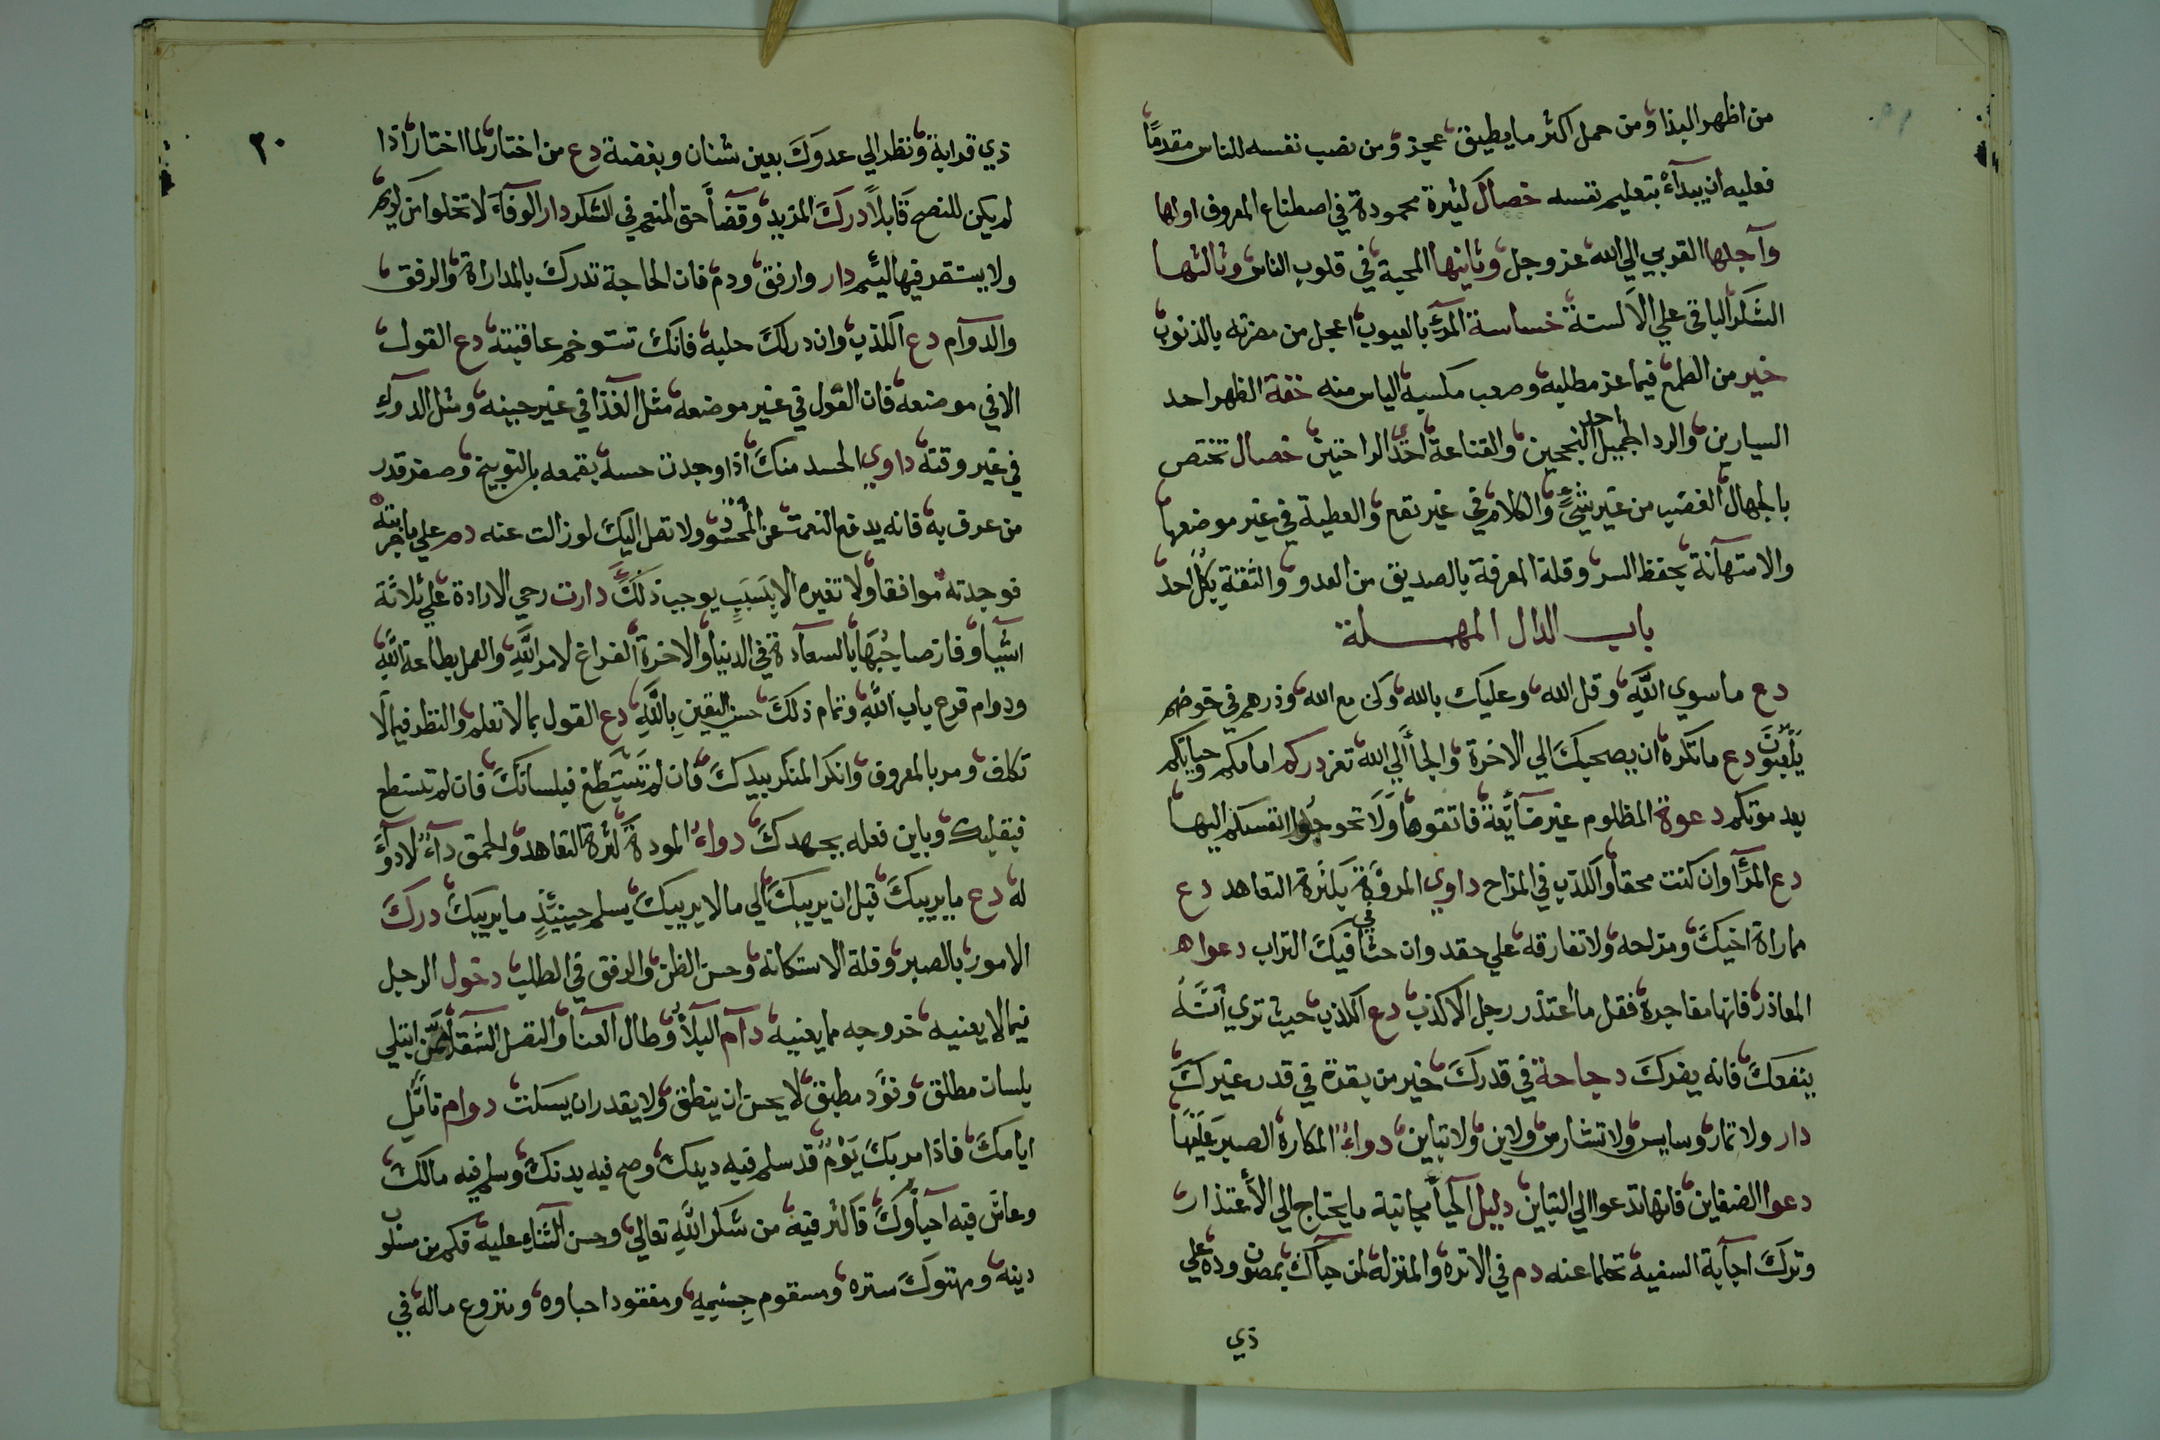 من اظهر البذا ومن حمل اكثر ما يطيق عجز ومن نصب نفسه للناس مقدمًا
فعليه ان يبدآء بتعليم نفسه خصال كثيرة محمودة في اصطناع المعروف اولها
وآجلها القربي الي الله عز وجل وثانيها المحبة في قلوب الناس وثالثها
الشكر الباقي علي الالسنة خساسة المرء بالعيوب اعجل من مضرته بالذنوب
خير من الطمع فيما عز مطلبه وصعب مكسبه الياس منه خفة الظهر احد
السيارين والرد الجميل احد النجحين والقناعة احد الراحتين خصال تختص
بالجهال الغضب من غير شيء والكلام في غير نفع والعطية في غير موضعها
والاستهآنة بحفظ السر وقلة المعرفة بالصديق من العدو والثقة بكل احد
باب الدال المهملة
دع ما سوي الله وقل الله وعليك بالله وكن مع الله وذرهم في خوضهم
يلعبون دع ما تكره ان يصحبك الي الاخرة والجا الي الله تعز دركم امامكم وحياتكم
بعد موتكم دعوة المظلوم غير ضآيعة فاتقوها ولا تحوجوا انفسكم اليها
دع المرآ وان كنت محقا والكذب في المزاح داوي المروءة بكثرة التعاهد دع
مماراة اخيك ومزاحه ولا تفارقه علي حقد وان حثا في فيك التراب دعوا هـ
المعاذر فانها مفاجرة فقل ما اعتذر رجل الا كذب دع الكذب حيث تري أنّهُ
ينفعك فانه يضرك دجاجة في قدرك خير من بقرة في قدر غيرك
دار ولا تمار وسايس ولا تشار من ولاين ولا تباين دواءُ المكاره الصبر عليها
دعوا الضغاين فانها تدعوا الي التباين دليل الحيآ مجانبة ما يحتاج الي الأعتذار
وترك اجابة السفيه تحلما عنه دم في الاثره والمنزلة لمن حيآك بمصون وده علي
ذي
٢٠
ذي قرابة ونظر الي عدوك بعين شنان وبغضة دع من اختار لما اختار اذا
لم يكن للنصح قابلاً درك المزيد وقضآ حق المنعم في الشكر دار الوفآء لا تخلوا من كريم
ولا يستقر فيها لئيم دار وارفق ودم فان الحاجة تدرك بالمداراة والرفق
والدوآم دع الكذب وان درلك حلبه فانك تستوخم عاقبته دع القول
الا في موضعه فان القول في غير موضعه مثل الغذا في غير حينه ومثل الدوآءِ
في غير وقته داوي الحسد منك اذا وجدت حسه بقمعه بالتوبيخ وصغر قدر
من عرف به فانه يدفع النعمت عن المحسود ولا تصل اليك لو زالت عنه دم علي ما جربته
فوجدته موافقا ولا تغيره الا بسبب يوجب ذلك دارت رحي الارادة علي ثلاثة
اشيآ وفاز صاحبها بالسعادة في الدنيا والاخرة الفراغ لامر الله والعمل بطاعة الله
ودوام قرع باب الله وتمام ذلك حسن اليقين بالله دع القول بما لا تعلم والنظر فيما لا
تكلف ومر بالمعروف وانكر المنكر بيدك فان لم تستطع فبلسانك فان لم تستطع
فبقلبك وباين فعله بجهدك دواءُ المودة كثرة التعاهد والحمق دآءٌ لا دوآءَ
له دع ما يريبك قبل ان يريبك الي ما لا يريبك يسلم حينئذٍ ما يريبك درك
الامور بالصبر وقلة الاستكانه وحسن الظن والرفق في الطلب دخول الرجل
فيما لا يعنيه خروجه مما يعنيه دآم البلآءُ وطال العنا واتصل الشقآ لمن ابتلي
بلسان مطلق وفؤد مطبق لا يحسن ان ينطق ولا يقدر ان يسكت دوام تامُّل
ايامك فاذا مر بك يَوْمٌ قد سلم فيه دينك وصح فيه بدنك وسلم فيه مالك
وعاش فيه احيآؤك فاكثر فيه من شكر الله تعالي وحسن الثنآءِ عليه فكم من مسلوب
دينه ومهتوك ستره ومسقوم جسمه ومفقود احباوه ومنزوع ماله في